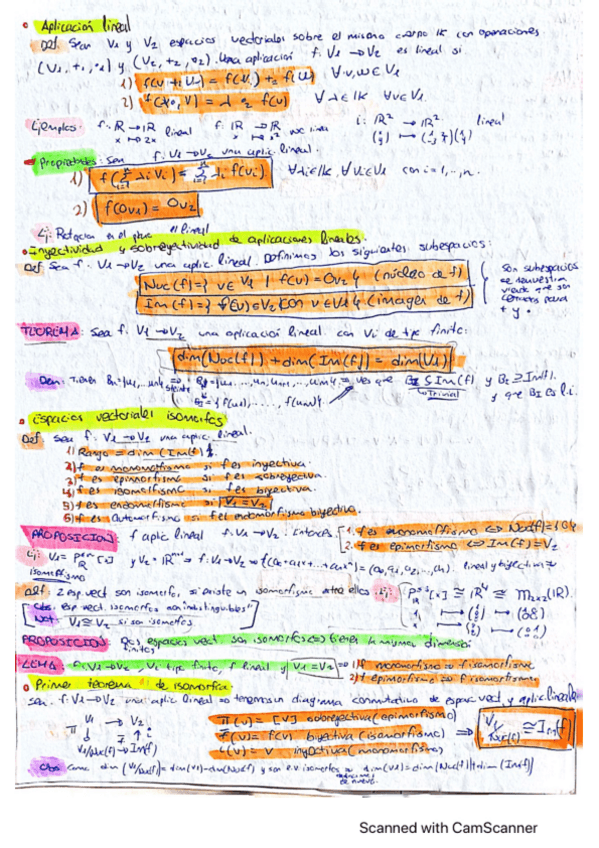 Aplicación lineal
Def. Sean V1 y V2 espacios vectoriales sobre el mismo cuerpo K con operaciones
(V1, +1, •1) y (V2, +2, •2). Una aplicación f: V1 → V2 es lineal si
1) f(v +1 w) = f(v) +2 f(w) ∀v, w ∈ V1
2) f(λ •1 v) = λ •2 f(v) ∀λ ∈ K ∀v ∈ V1.
Ejemplos: f: R → R lineal f: R → R no lineal i: R² → R² lineal
x ↦ 2x x ↦ x²
Propiedades: Sea f: V1 → V2 una aplic. lineal.
1) f(Σ λi vi) = Σ λi f(vi) ∀λi ∈ K, ∀vi ∈ V1 con i = 1, .., n.
2) f(0v1) = 0v2
Ej: Rotacion en el plano es lineal
Inyectividad y sobreyectividad de aplicaciones lineales.
Def Sea f: V1 → V2 una aplic. lineal. Definimos los siguientes subespacios:
Nuc(f) = { v ∈ V1 | f(v) = 0v2 } (núcleo de f)
Im(f) = { f(v) ∈ V2 con v ∈ V1 } (imagen de f)
Son subespacios
se demuestran
viendo que son
cerrados para
+ y •
TEOREMA: Sea f: V1 → V2 una aplicación lineal con Vi de tipo finito:
dim(Nuc(f)) + dim(Im(f)) = dim(V1)
Dem: ves que B2 ⊆ Im(f) y B2 ⊇ Im(f).
Trivial y que B2 es l.i.
Espacios vectoriales isomorfos
Def sea f: V1 → V2 una aplic. lineal.
1) Rango = dim(Im(f))
2) f es monomorfismo si f es inyectiva.
3) f es epimorfismo si f es sobreyectiva.
4) f es isomorfismo si f es biyectiva.
5) f es endomorfismo si V1 = V2
6) f es automorfismo si f es endomorfismo biyectivo.
PROPOSICION: f aplic lineal f: V1 → V2. Entonces
1. f es monomorfismo ⇔ Nuc(f) = {0}
2. f es epimorfismo ⇔ Im(f) = V2
isomorfismo
Def: 2 esp vect son isomorfo, si existe un isomorfismo entre ellos. Ej:
Obs: esp vect. isomorfos son indistinguibles
Not: V1 ≅ V2 si son isomorfos
PROPOSICION Dos espacios vect finitos son isomorfos ⇔ tienen la misma dimensión
LEMA: f: V1 → V2, Vi tipo finito, f lineal y V1 = V2 ⇒ 1) f monomorfismo ⇒ f isomorfismo
2) f epimorfismo ⇒ f isomorfismo
Primer teorema de isomorfía:
Sea f: V1 → V2 una aplic lineal ⇒ tenemos un diagrama conmutativo de espac. vect. y aplic. lineales
V1 → V2
V1/Nuc(f) → Im(f)
π(v) = [v] sobreyectiva (epimorfismo)
f(v) = f(v) biyectiva (isomorfismo)
i(v) = v inyectiva (monomorfismo)
⇒ V1/Nuc(f) ≅ Im(f)
Obs Como dim(V1/Nuc(f)) = dim(V1) - dim(Nuc(f)) y son e.v isomorfos ⇒ dim(V1) = dim(Nuc(f)) + dim(Im(f))
Scanned with CamScanner